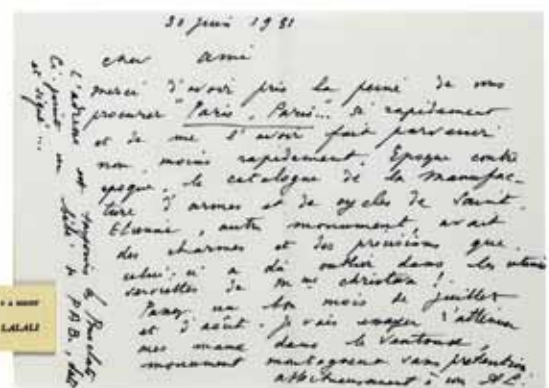 30 juin 1981
cher ami
merci d'avoir pris la peine de nous
procurer "Paris, Paris..." si rapidement
et de me l'avoir fait parvenir
non moins rapidement. Epoque contre
époque, le catalogue de la manufac-
ture d'armes et de cycles de Saint-
Etienne, autre monument, avait
des charmes et des précisions que
celui-ci a dû oublier dans les
de Mme christian !
Passez un bon mois de juillet
et d'août. Je vais essayer d'
mes dans le Ventoux,
monument montagneux sans prétention
affectueusement à vous
L'adresse est toujours
Ci-joint un bébé de PAB,
et signé...
LALALI